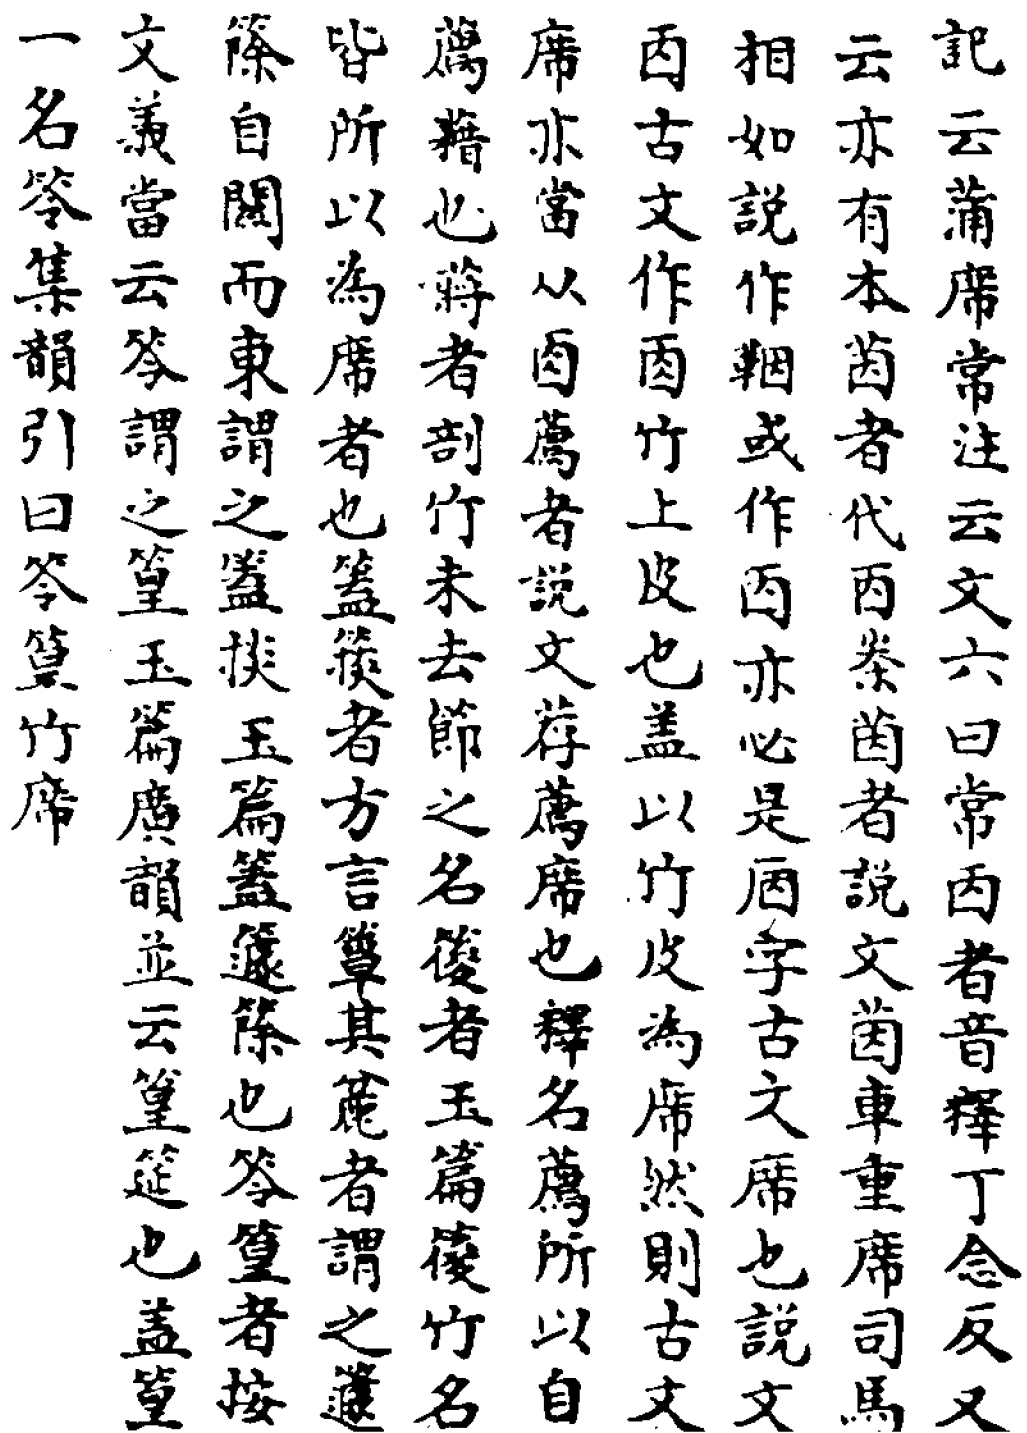 記云蒲席常注云文六曰常㐁者音釋丁念反又
云亦有本茵者代㐁泰茵者説文茵車重席司馬
相如説作鞇或作㐁亦必是㔷字古文席也説文
㐁古文作㐁竹上皮也盖以竹皮為席然則古文
席亦當从㐁薦者説文荐薦席也釋名薦所以自
薦藉也蔣者剖竹未去節之名䈡者玉篇䈡竹名
皆所以為席者也簋䈎者方言簟其麄者謂之籧
篨自關而東謂之䈎掞玉篇簋籧篨也笭篂者按
文義當云笭謂之篁玉篇廣韻並云篁筵也盖篁
一名笭集韻引曰笭篂竹席